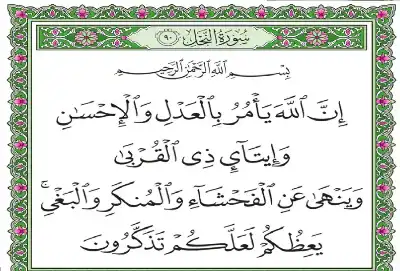 سُورَةُ النَّحْلِ ٩٠
بِسْمِ اللَّهِ الرَّحْمَٰنِ الرَّحِيمِ
إِنَّ ٱللَّهَ يَأْمُرُ بِٱلْعَدْلِ وَٱلْإِحْسَٰنِ
وَإِيتَآيِٕ ذِى ٱلْقُرْبَىٰ
وَيَنْهَىٰ عَنِ ٱلْفَحْشَآءِ وَٱلْمُنكَرِ وَٱلْبَغْىِ ۚ
يَعِظُكُمْ لَعَلَّكُمْ تَذَكَّرُونَ